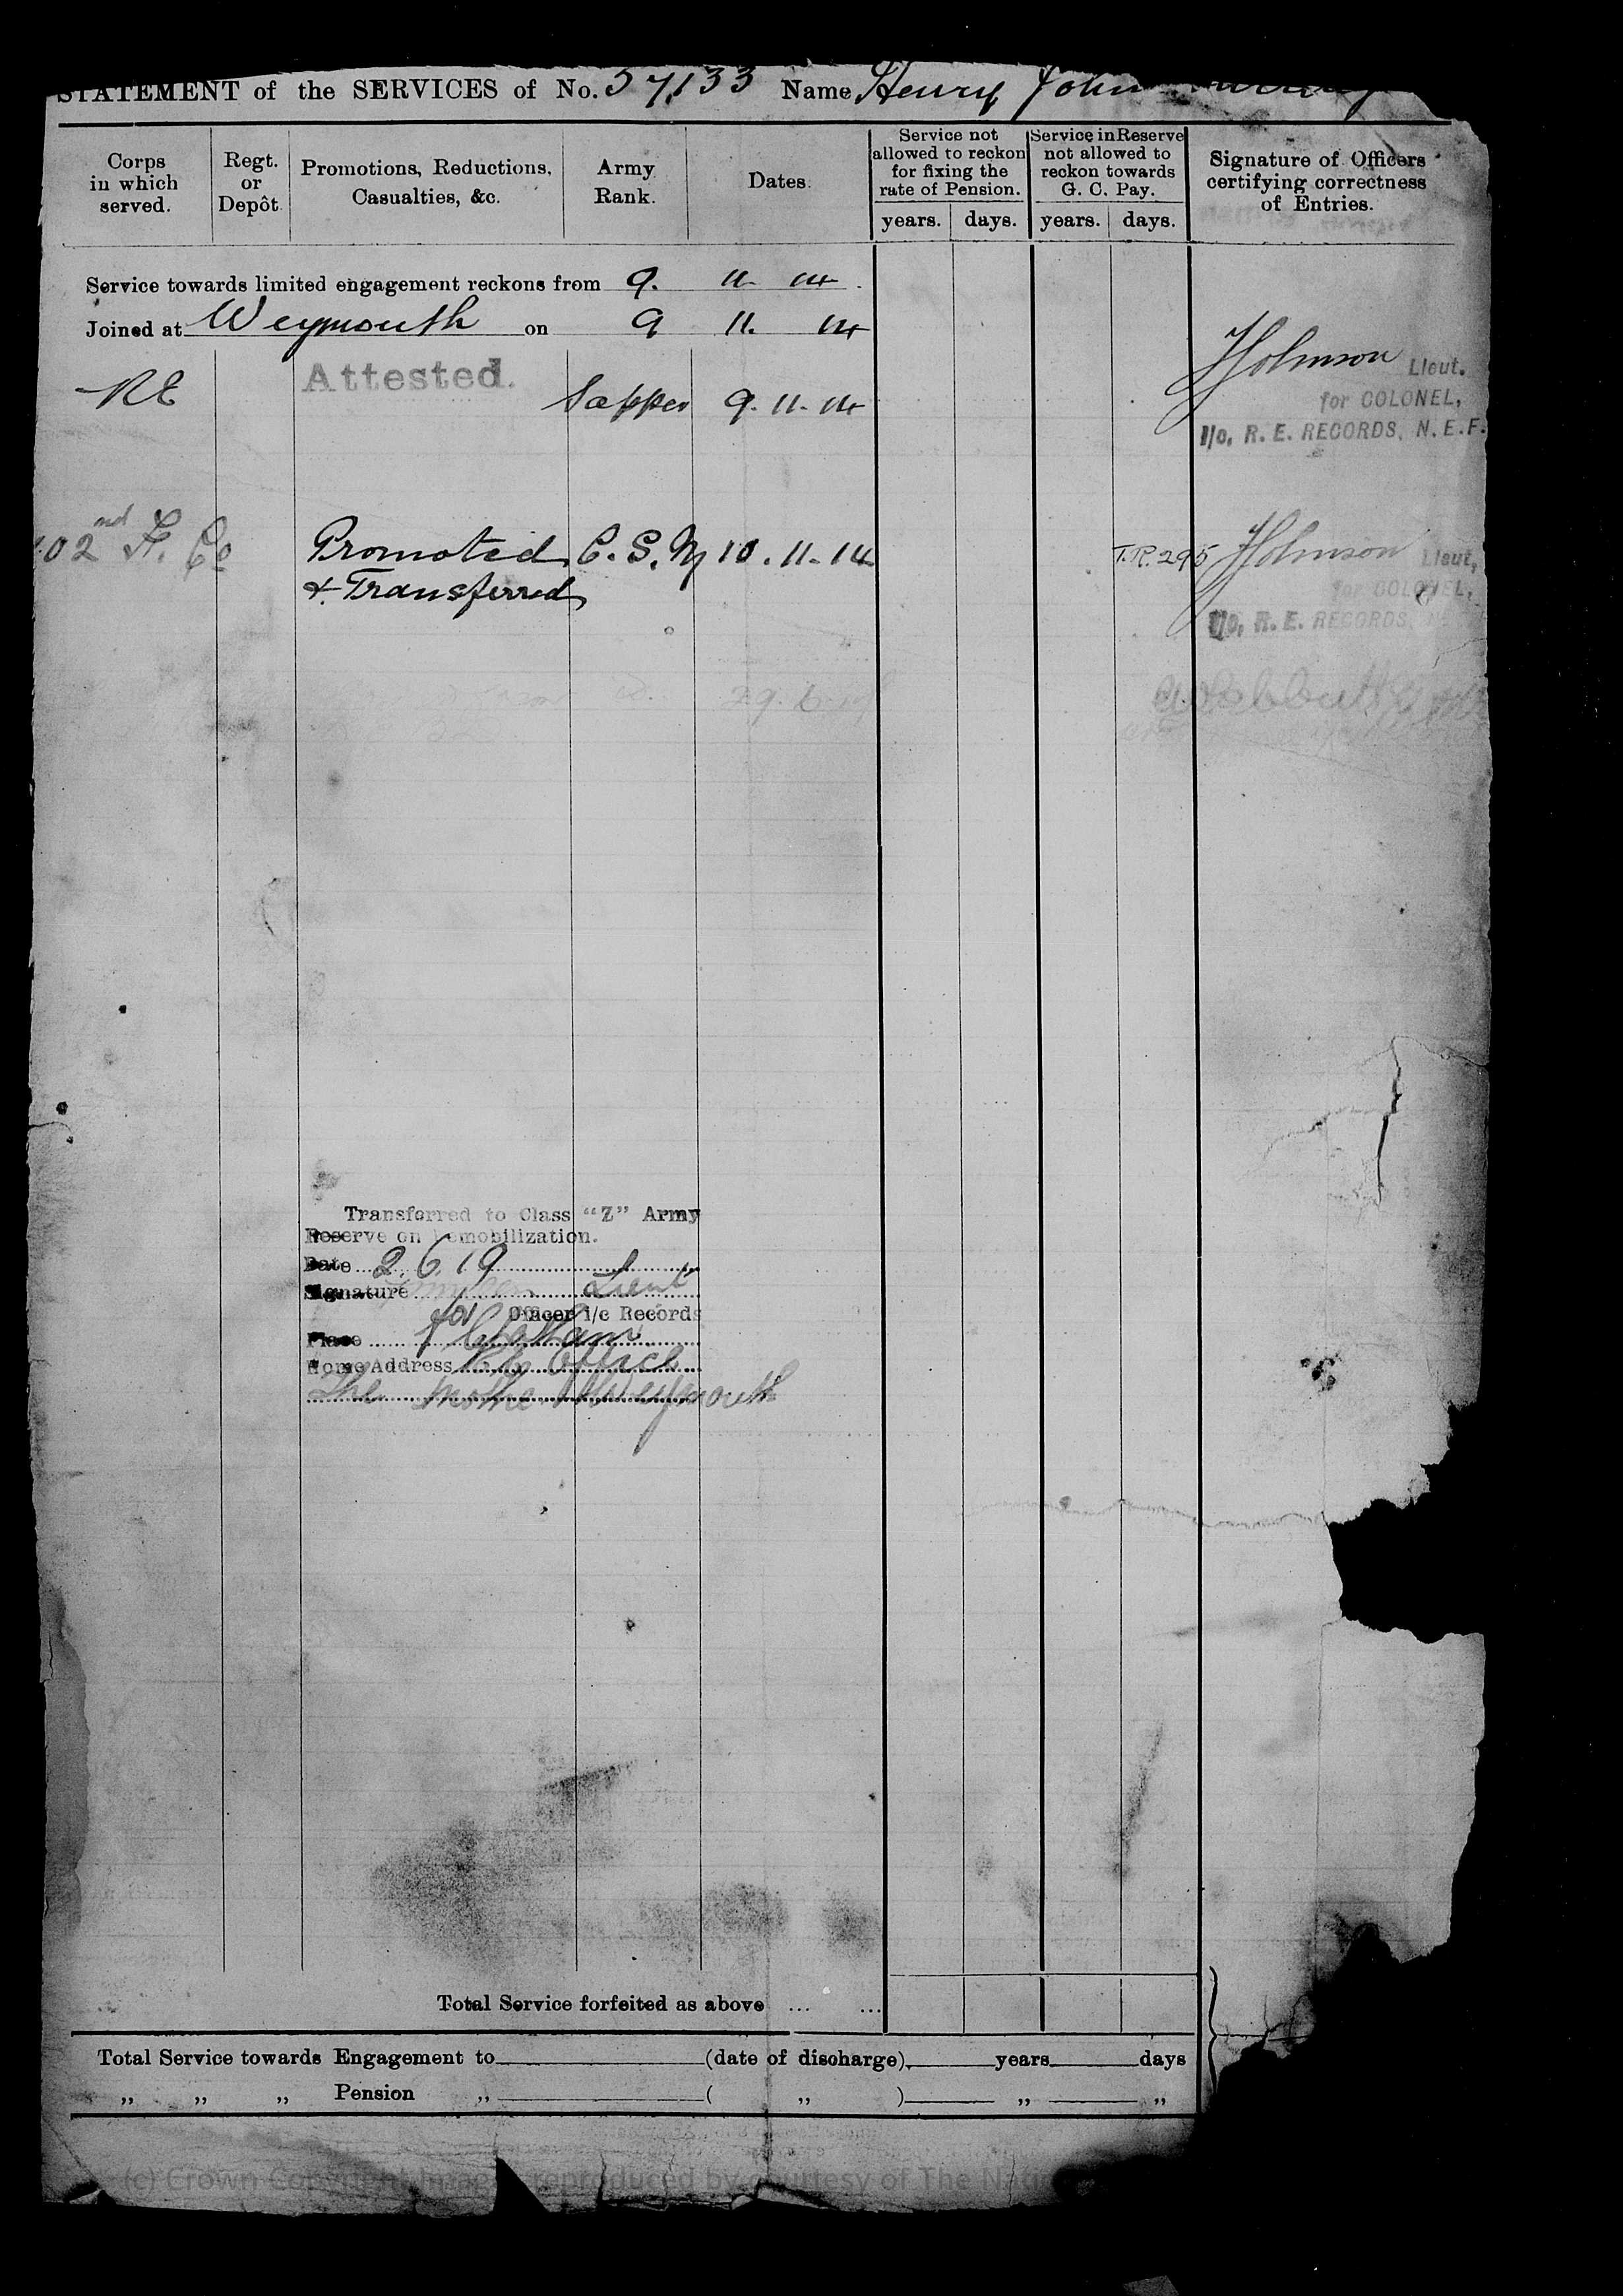 STATEMENT of the SERVICES of No. 57133 Name Henry John
Corps in which served.
Regt. or Depôt
Promotions, Reductions, Casualties, &c.
Army Rank.
Dates.
Service not allowed to reckon for fixing the rate of Pension.
Service in Reserve not allowed to reckon towards G. C. Pay.
Signature of Officers certifying correctness of Entries.
years. days. years. days.
Service towards limited engagement reckons from 9. 11. 14
Joined at Weymouth on 9 11. 14
RE Attested. Sapper 9. 11. 14
Johnson Lieut.
for COLONEL,
I/c, R. E. RECORDS, N. E. F.
102nd F. Co Promoted C. S. M 10. 11. 14 T.R. 295 Johnson Lieut,
& Transferred
for COLONEL,
I/c, R. E. RECORDS,
29. 6.
Transferred to Class "Z" Army
Reserve on Demobilization.
Date 2. 6. 19
Signature Lieut
for Officer i/c Records
Place Chatham
Home Address R E Office
The Nothe Weymouth
Total Service forfeited as above ... ...
Total Service towards Engagement to (date of discharge) years days
„ „ „ Pension „ ( „ ) „ „
(c) Crown Copyright Images reproduced by courtesy of The